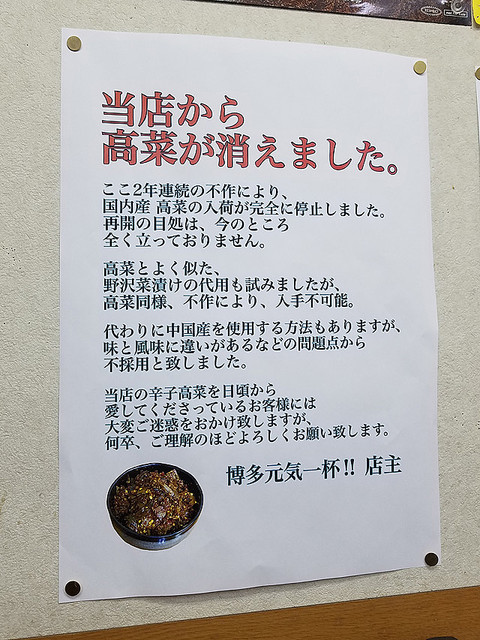 当店から
高菜が消えました。
ここ2年連続の不作により、
国内産 高菜の入荷が完全に停止しました。
再開の目処は、今のところ
全く立っておりません。
高菜とよく似た、
野沢菜漬けの代用も試みましたが、
高菜同様、不作により、入手不可能。
代わりに中国産を使用する方法もありますが、
味と風味に違いがあるなどの問題点から
不採用と致しました。
当店の辛子高菜を日頃から
愛してくださっているお客様には
大変ご迷惑をおかけ致しますが、
何卒、ご理解のほどよろしくお願い致します。
博多元気一杯!! 店主